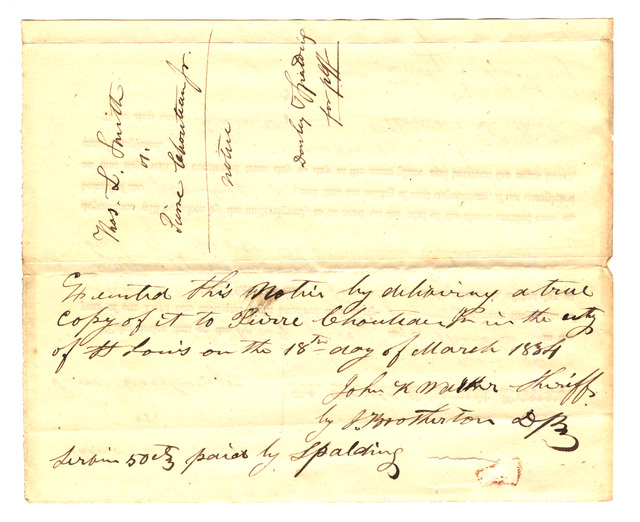 Thos. L. Smith
vs.
Pierre Chouteau Jr.
notice
Spalding
for plff
Executed this Notice by delivering a true
Copy of it to Pierre Chouteau Jr in the city
of St Louis on the 18th day of March 1834
John K Walker Sheriff
by J. Brotherton D
Service 50cts paid by Spalding